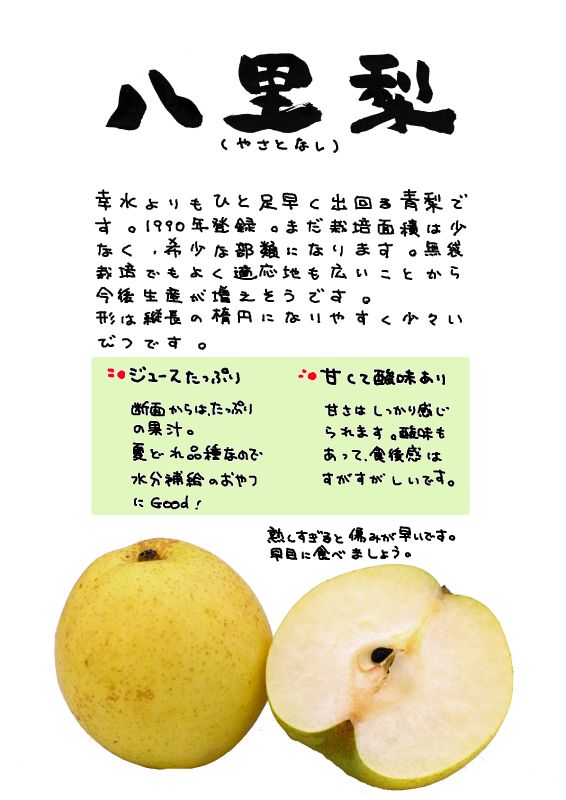 八里梨
(やさとなし)
幸水よりもひと足早く出回る青梨で
す。1990年登録。まだ栽培面積は少
なく、希少な部類になります。無袋
栽培でもよく適応地も広いことから
今後生産が増えそうです。
形は縦長の楕円になりやすく少々い
びつです。
ジュースたっぷり
断面からは、たっぷり
の果汁。
夏どれ品種なので
水分補給のおやつ
にGood!
甘くて酸味あり
甘さはしっかり感じ
られます。酸味も
あって、食後感は
すがすがしいです。
熟しすぎると傷みが早いです。
早目に食べましょう。